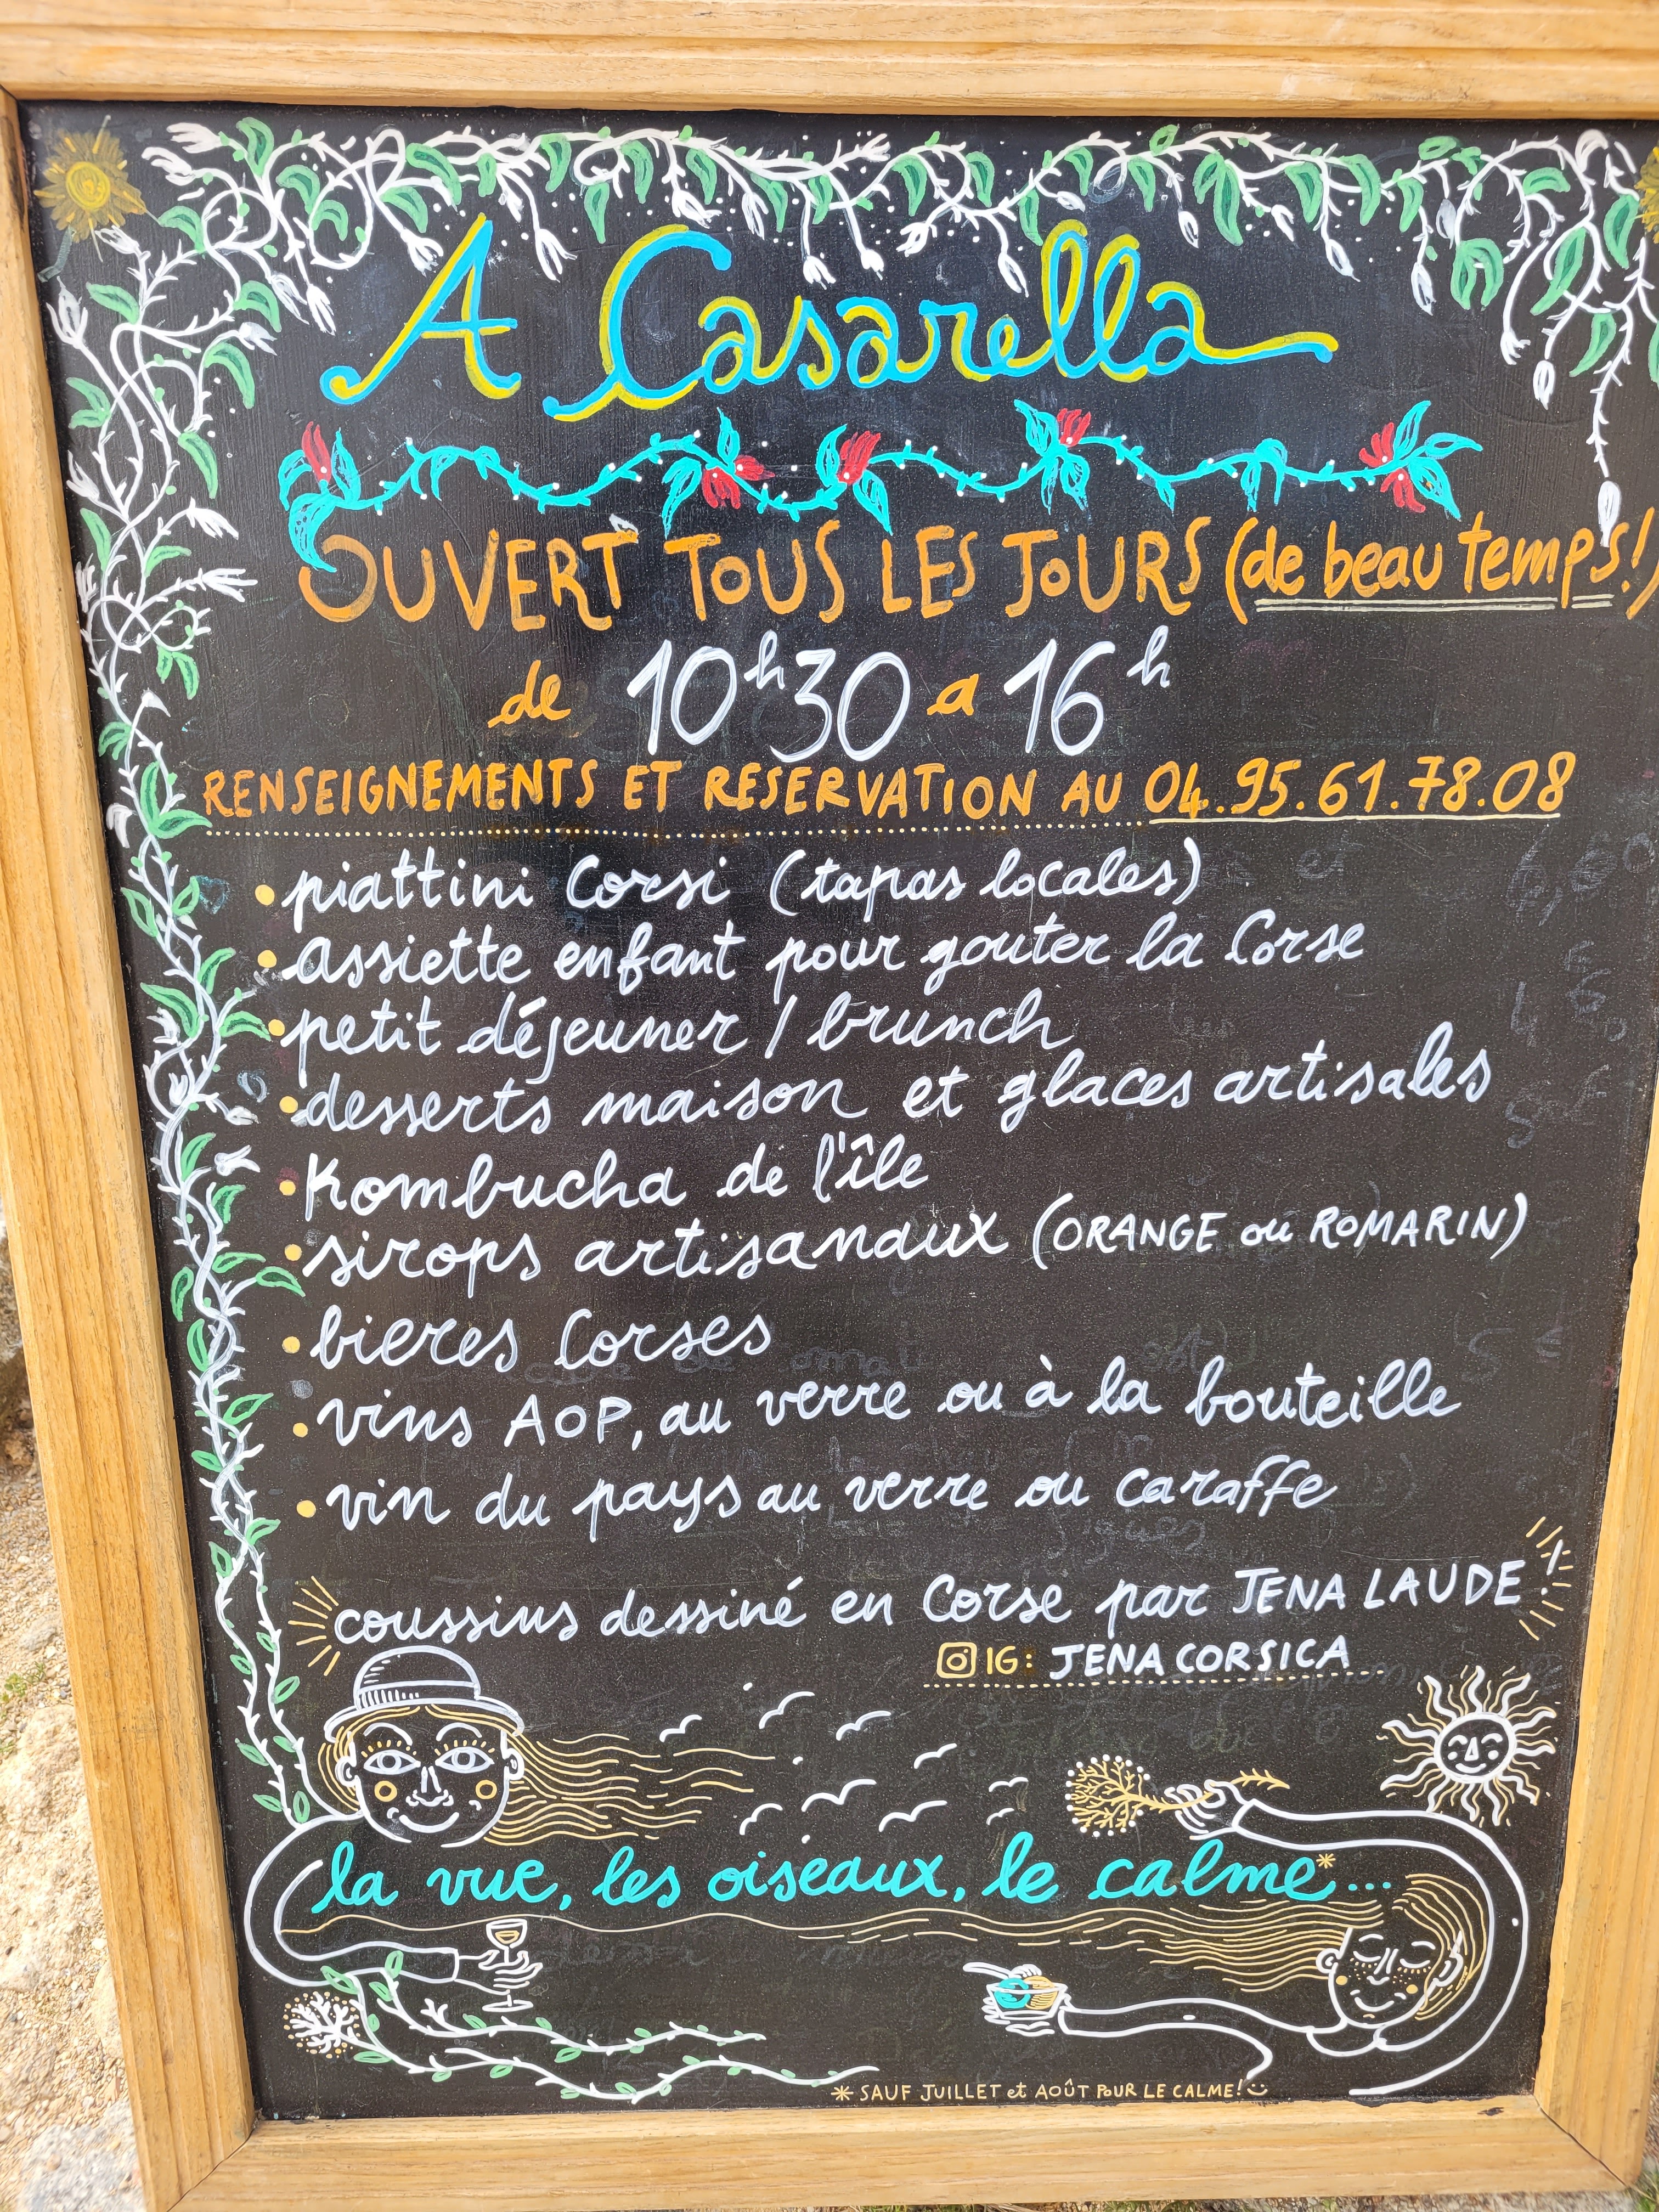 A Casarella
OUVERT TOUS LES JOURS (de beau temps!)
de 10h30 a 16h
RENSEIGNEMENTS ET RESERVATION AU 04.95.61.78.08
• piattini Corsi (tapas locales)
• assiette enfant pour gouter la Corse
• petit déjeuner / brunch
• desserts maison et glaces artisales
• Kombucha de l'île
• sirops artisanaux (ORANGE ou ROMARIN)
• bieres Corses
• vins AOP, au verre ou à la bouteille
• vin du pays au verre ou caraffe
coussins dessiné en Corse par JENA LAUDE !
IG: JENACORSICA
la vue, les oiseaux, le calme*...
* SAUF JUILLET et AOÛT POUR LE CALME! :)